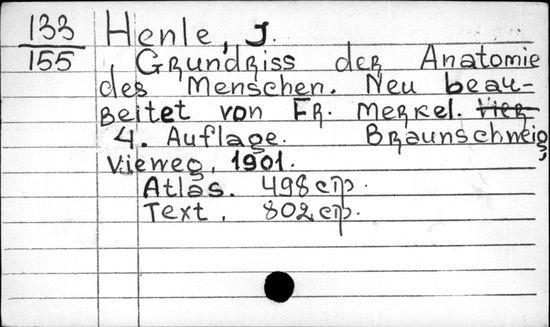 133
155
Henle, J.
Grundriss der Anatomie
des Menschen. Neu beau-
beitet von Fr. Merkel. Vier
4. Auflage. Braunschweig,
Vieweg, 1901.
Atlas. 498 стр.
Text. 802 стр.